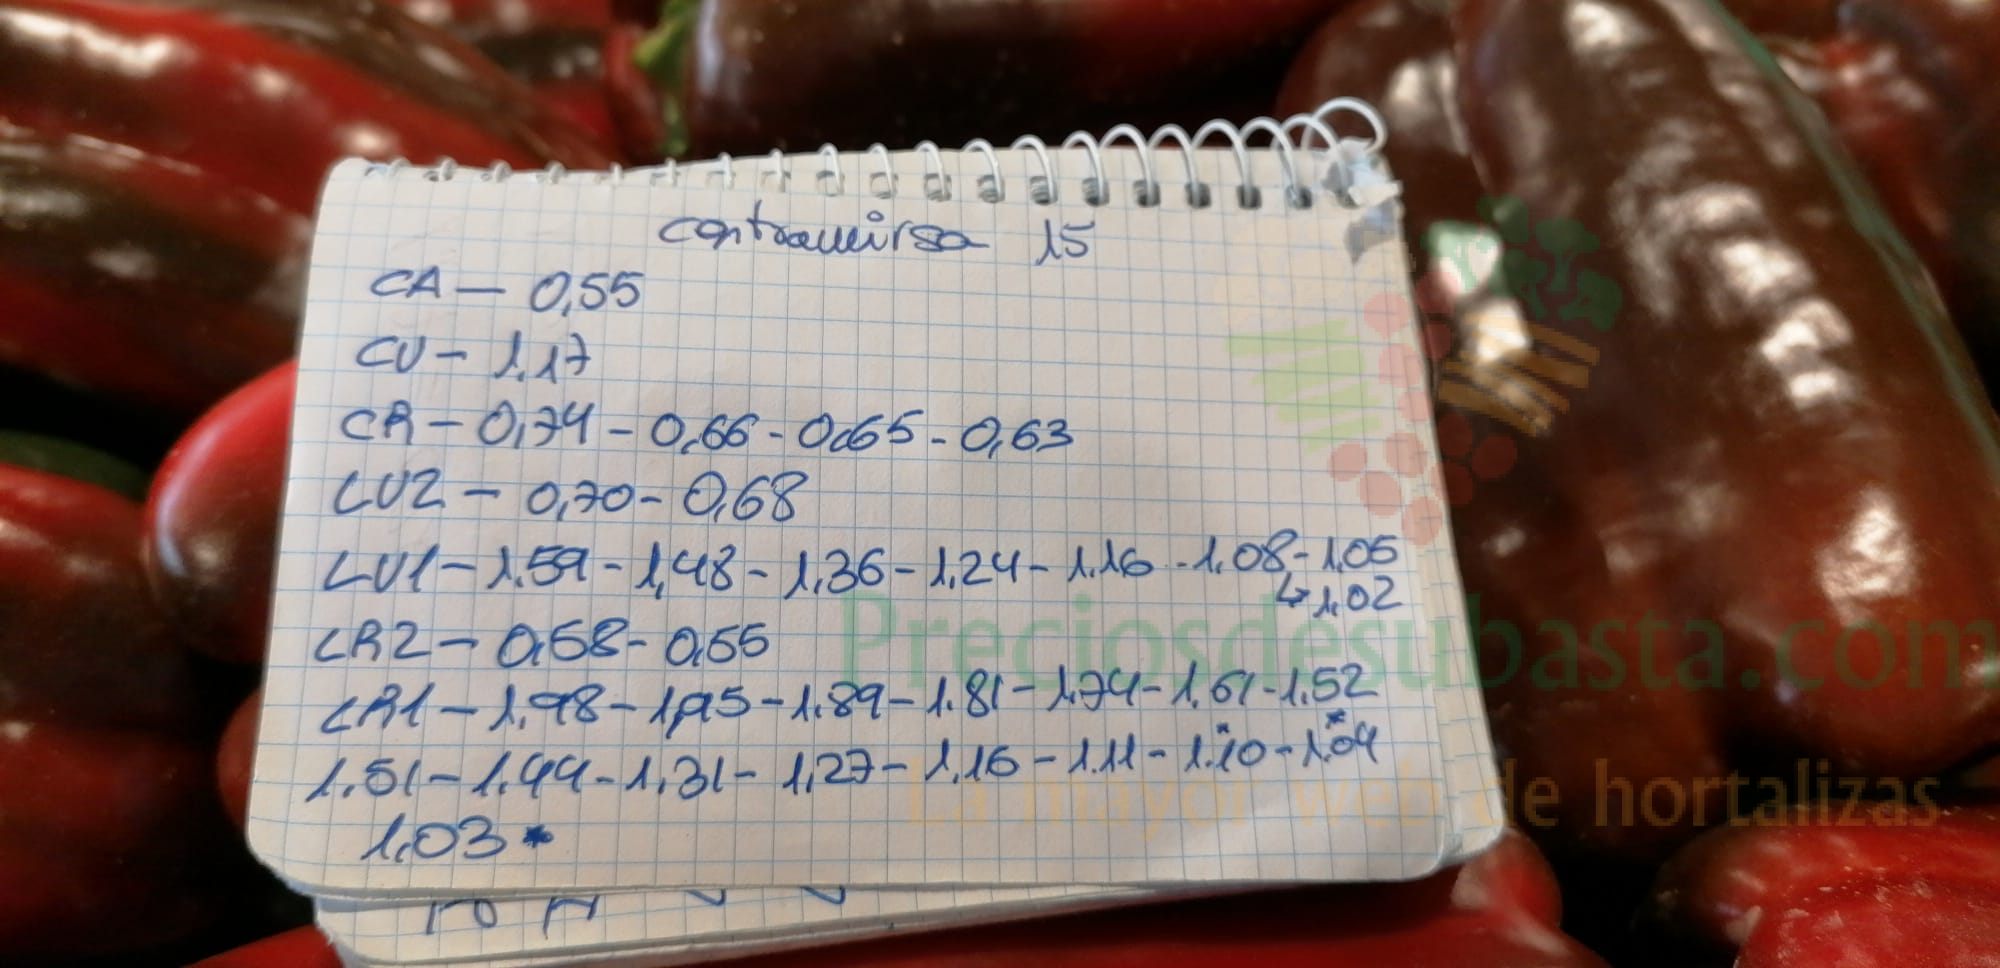 contraviesa 15
CA - 0,55
CV - 1.17
CR - 0,74 - 0,66 - 0,65 - 0,63
LV2 - 0,70 - 0,68
LV1 - 1.59 - 1,48 - 1.36 - 1.24 - 1.16 - 1.08 - 1.05
↳ 1.02
LR2 - 0,58 - 0,55
LR1 - 1.98 - 1,95 - 1.89 - 1.81 - 1.74 - 1.61 - 1.52
1.51 - 1.44 - 1.31 - 1,27 - 1.16 - 1.11 - 1.10* - 1.04*
1.03*
Preciosdesubasta.com
La mayor web de hortalizas